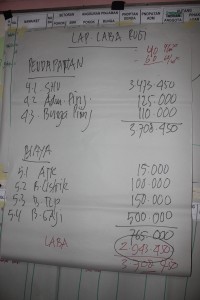 LAP. LABA RUGI
PENDAPATAN
4.1 SHU 3.473.450
4.2 Adm. Pinj 125.000
4.3 Bunga Pinj 110.000
3.708.450
BIAYA
5.1 ATK 15.000
5.2 B. Listrik 100.000
5.3 B. Tlp 150.000
5.4 B. Gaji 500.000
765.000
LABA 2.943.450
3.708.450